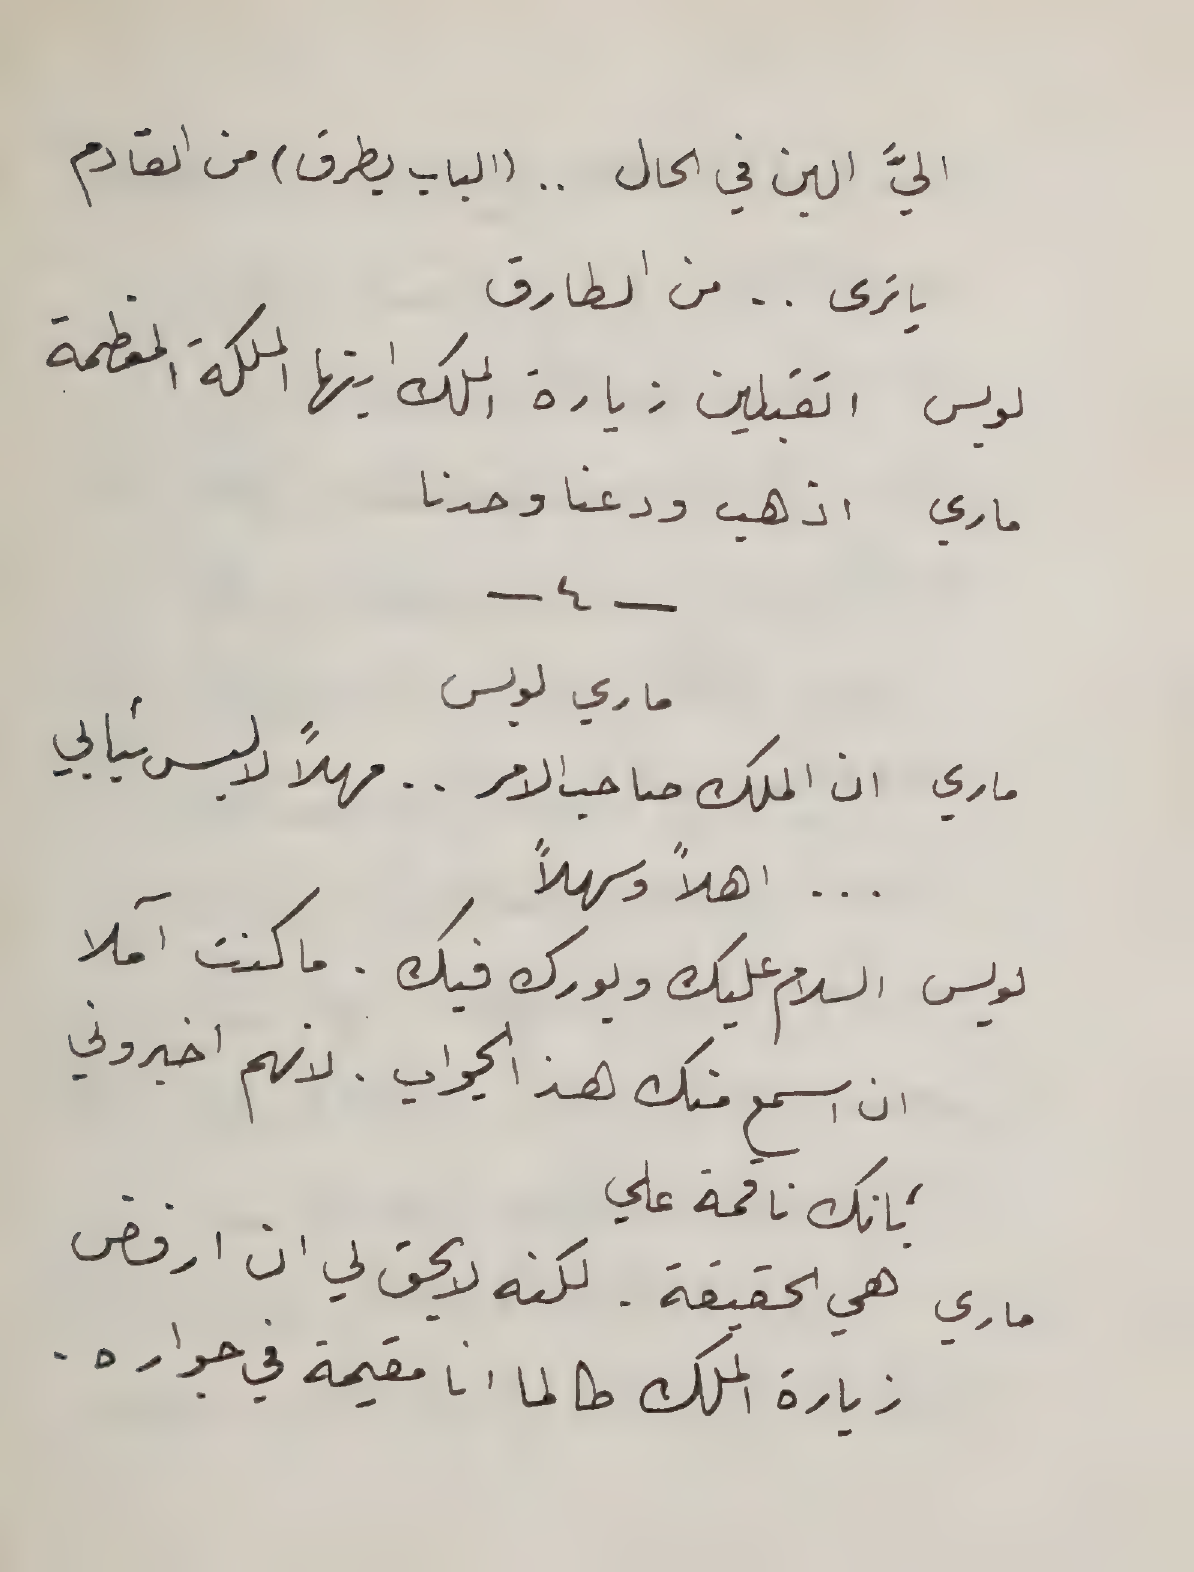 اليَّ الين في الحال .. (الباب يطرق) من القادم
ياترى .. من الطارق
لويس اتقبلين زيارة الملك ايتها الملكة المعظمة
ماري اذهب ودعنا وحدنا
— ٤ —
ماري لويس
ماري ان الملك صاحب الامر .. مهلاً لالبس ثيابي
... اهلاً وسهلاً
لويس السلام عليك وبورك فيك . ما كنت آملا
ان اسمع منك هذا الجواب . لانهم اخبروني
بانك ناقمة علي
ماري هي الحقيقة . لكنه لايحق لي ان ارفض
زيارة الملك طالما انا مقيمة في جواره .